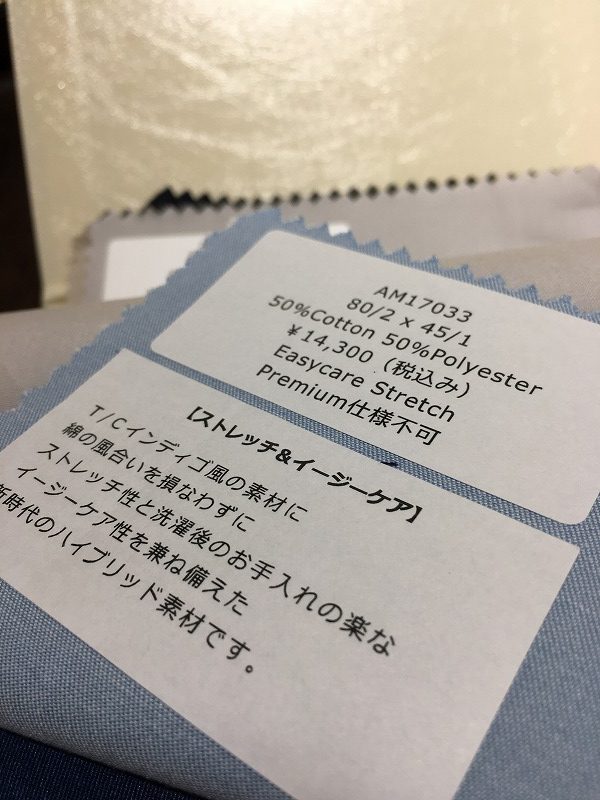 AM17033
80/2 x 45/1
50%Cotton 50%Polyester
￥14,300（税込み）
Easycare Stretch
Premium仕様不可
【ストレッチ&イージーケア】
T/Cインディゴ風の素材に
綿の風合いを損なわずに
ストレッチ性と洗濯後のお手入れの楽な
イージーケア性を兼ね備えた
新時代のハイブリッド素材です。